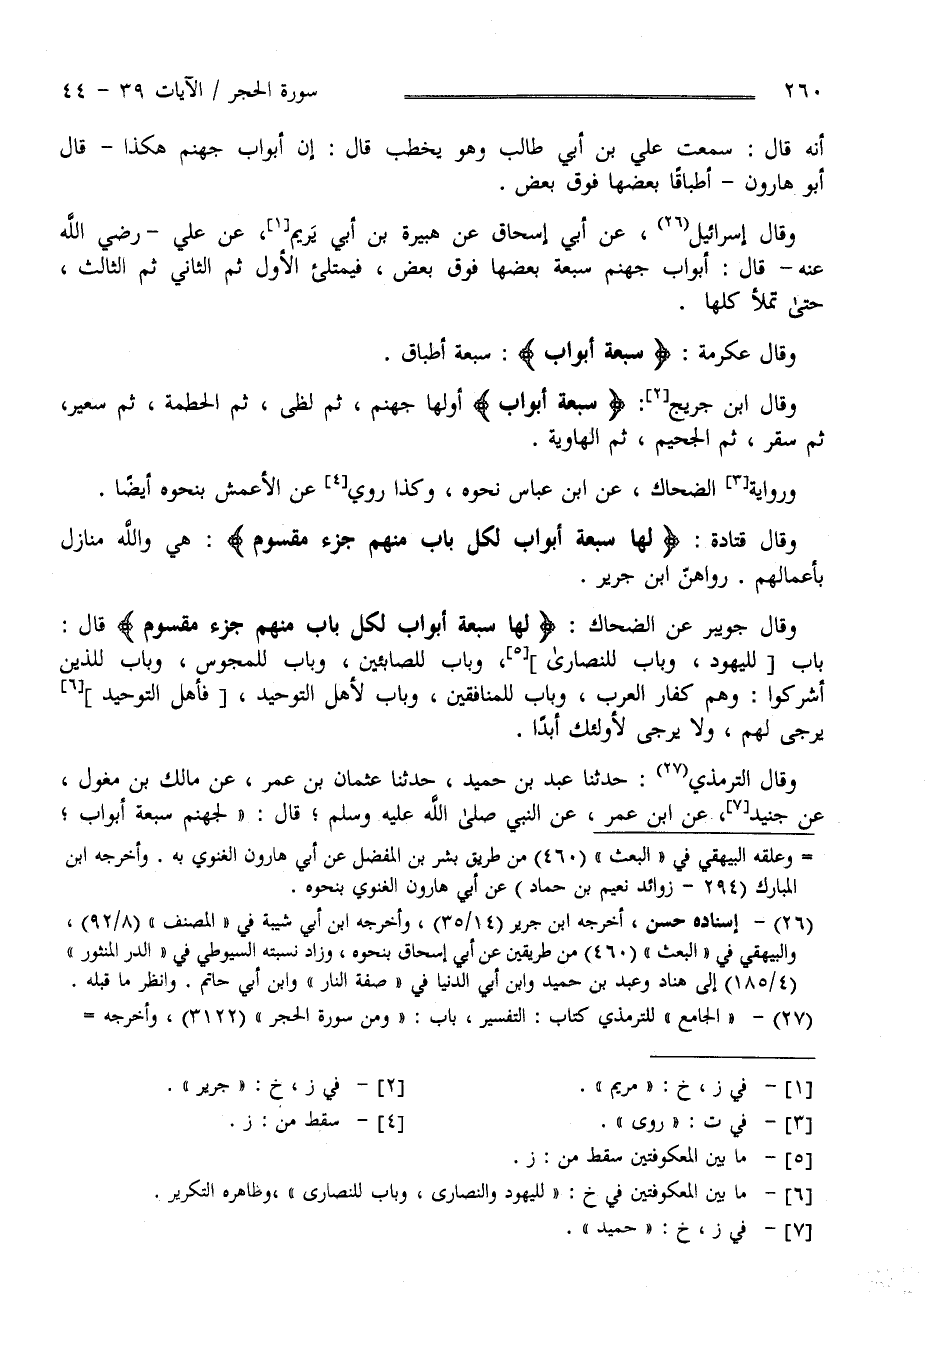 ٢٦٠ سورة الحجر / الآيات ٣٩ - ٤٤
أنه قال : سمعت علي بن أبي طالب وهو يخطب قال : إن أبواب جهنم هكذا - قال
أبو هارون - أطباقًا بعضها فوق بعض .
وقال إسرائيل(٢٦) ، عن أبي إسحاق عن هبيرة بن أبي يَريم[١]، عن علي - رضي اللَّه
عنه - قال : أبواب جهنم سبعة بعضها فوق بعض ، فيمتلئ الأول ثم الثاني ثم الثالث ،
حتىٰ تملأ كلها .
وقال عكرمة : ﴿ سبعة أبواب ﴾ : سبعة أطباق .
وقال ابن جريج[٢]: ﴿ سبعة أبواب ﴾ أولها جهنم ، ثم لظى ، ثم الحطمة ، ثم سعير،
ثم سقر ، ثم الجحيم ، ثم الهاوية .
ورواية[٣] الضحاك ، عن ابن عباس نحوه ، وكذا روي[٤] عن الأعمش بنحوه أيضًا .
وقال قتادة : ﴿ لها سبعة أبواب لكل باب منهم جزء مقسوم ﴾ : هي واللَّه منازل
بأعمالهم . رواهنّ ابن جرير .
وقال جويبر عن الضحاك : ﴿ لها سبعة أبواب لكل باب منهم جزء مقسوم ﴾ قال :
باب [ لليهود ، وباب للنصارىٰ ][٥]، وباب للصابئين ، وباب للمجوس ، وباب للذين
أشركوا : وهم كفار العرب ، وباب للمنافقين ، وباب لأهل التوحيد ، [ فأهل التوحيد ][٦]
يرجى لهم ، ولا يرجى لأولئك أبدًا .
وقال الترمذي(٢٧) : حدثنا عبد بن حميد ، حدثنا عثمان بن عمر ، عن مالك بن مغول ،
عن جنيد[٧]، عن ابن عمر ، عن النبي صلىٰ اللَّه عليه وسلم ؛ قال : « لجهنم سبعة أبواب ؛
= وعلقه البيهقي في « البعث » (٤٦٠) من طريق بشر بن المفضل عن أبي هارون الغنوي به . وأخرجه ابن
المبارك (٢٩٤ - زوائد نعيم بن حماد ) عن أبي هارون الغنوي بنحوه .
(٢٦) - إسناده حسن ، أخرجه ابن جرير (٣٥/١٤) ، وأخرجه ابن أبي شيبة في « المصنف » (٩٢/٨) ،
والبيهقي في « البعث » (٤٦٠) من طريقين عن أبي إسحاق بنحوه ، وزاد نسبته السيوطي في « الدر المنثور »
(١٨٥/٤) إلى هناد وعبد بن حميد وابن أبي الدنيا في « صفة النار » وابن أبي حاتم . وانظر ما قبله .
(٢٧) - « الجامع » للترمذي كتاب : التفسير ، باب : « ومن سورة الحجر » (٣١٢٢) ، وأخرجه =
[١] - في ز ، خ : « مريم » . [٢] - في ز ، خ : « جرير » .
[٣] - في ت : « روى » . [٤] - سقط من : ز .
[٥] - ما بين المعكوفتين سقط من : ز .
[٦] - ما بين المعكوفتين في خ : « لليهود والنصارى ، وباب للنصارى » ،وظاهره التكرير .
[٧] - في ز ، خ : « حميد » .